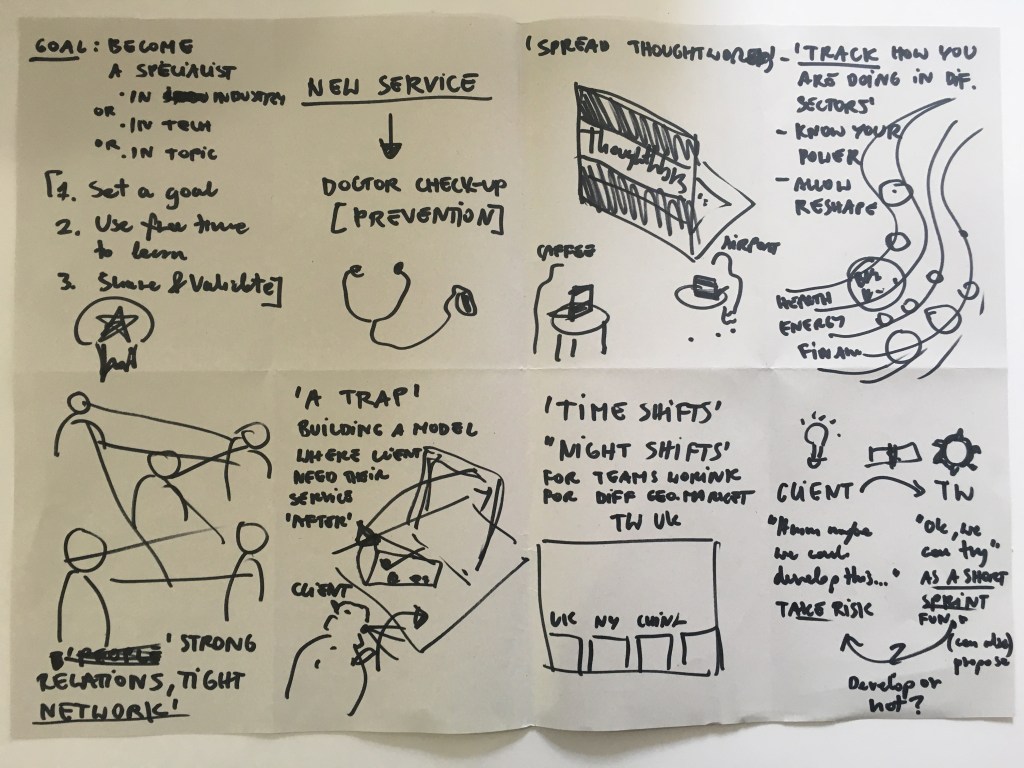 GOAL: BECOME
A SPECIALIST
· IN INDUSTRY
OR
· IN TECH
OR
· IN TOPIC
[1. Set a goal
2. Use free time
to learn
3. Share & Validate]
NEW SERVICE
DOCTOR CHECK-UP
[PREVENTION]
'SPREAD THOUGHTWORKS'
Thoughtworks
CAFFEE
AIRPORT
- 'TRACK HOW YOU
ARE DOING IN DIF.
SECTORS'
- KNOW YOUR
POWER
- ALLOW
RESHAPE
HEALTH
ENERGY
FINAN
'STRONG
RELATIONS, TIGHT
NETWORK'
'A TRAP'
BUILDING A MODEL
WHERE CLIENT
NEED THEIR
SERVICE
'AFTER'
CLIENT
'TIME SHIFTS'
"NIGHT SHIFTS'
FOR TEAMS WORKING
FOR DIFF GEO.MARKET
TW UK
UK NY CHINA
CLIENT TW
"Humm maybe
we could
develop this..."
TAKE RISK
"Ok, we
can try"
AS A SHORT
SPRINT
FUN
(can also)
propose
?
Develop or
not?